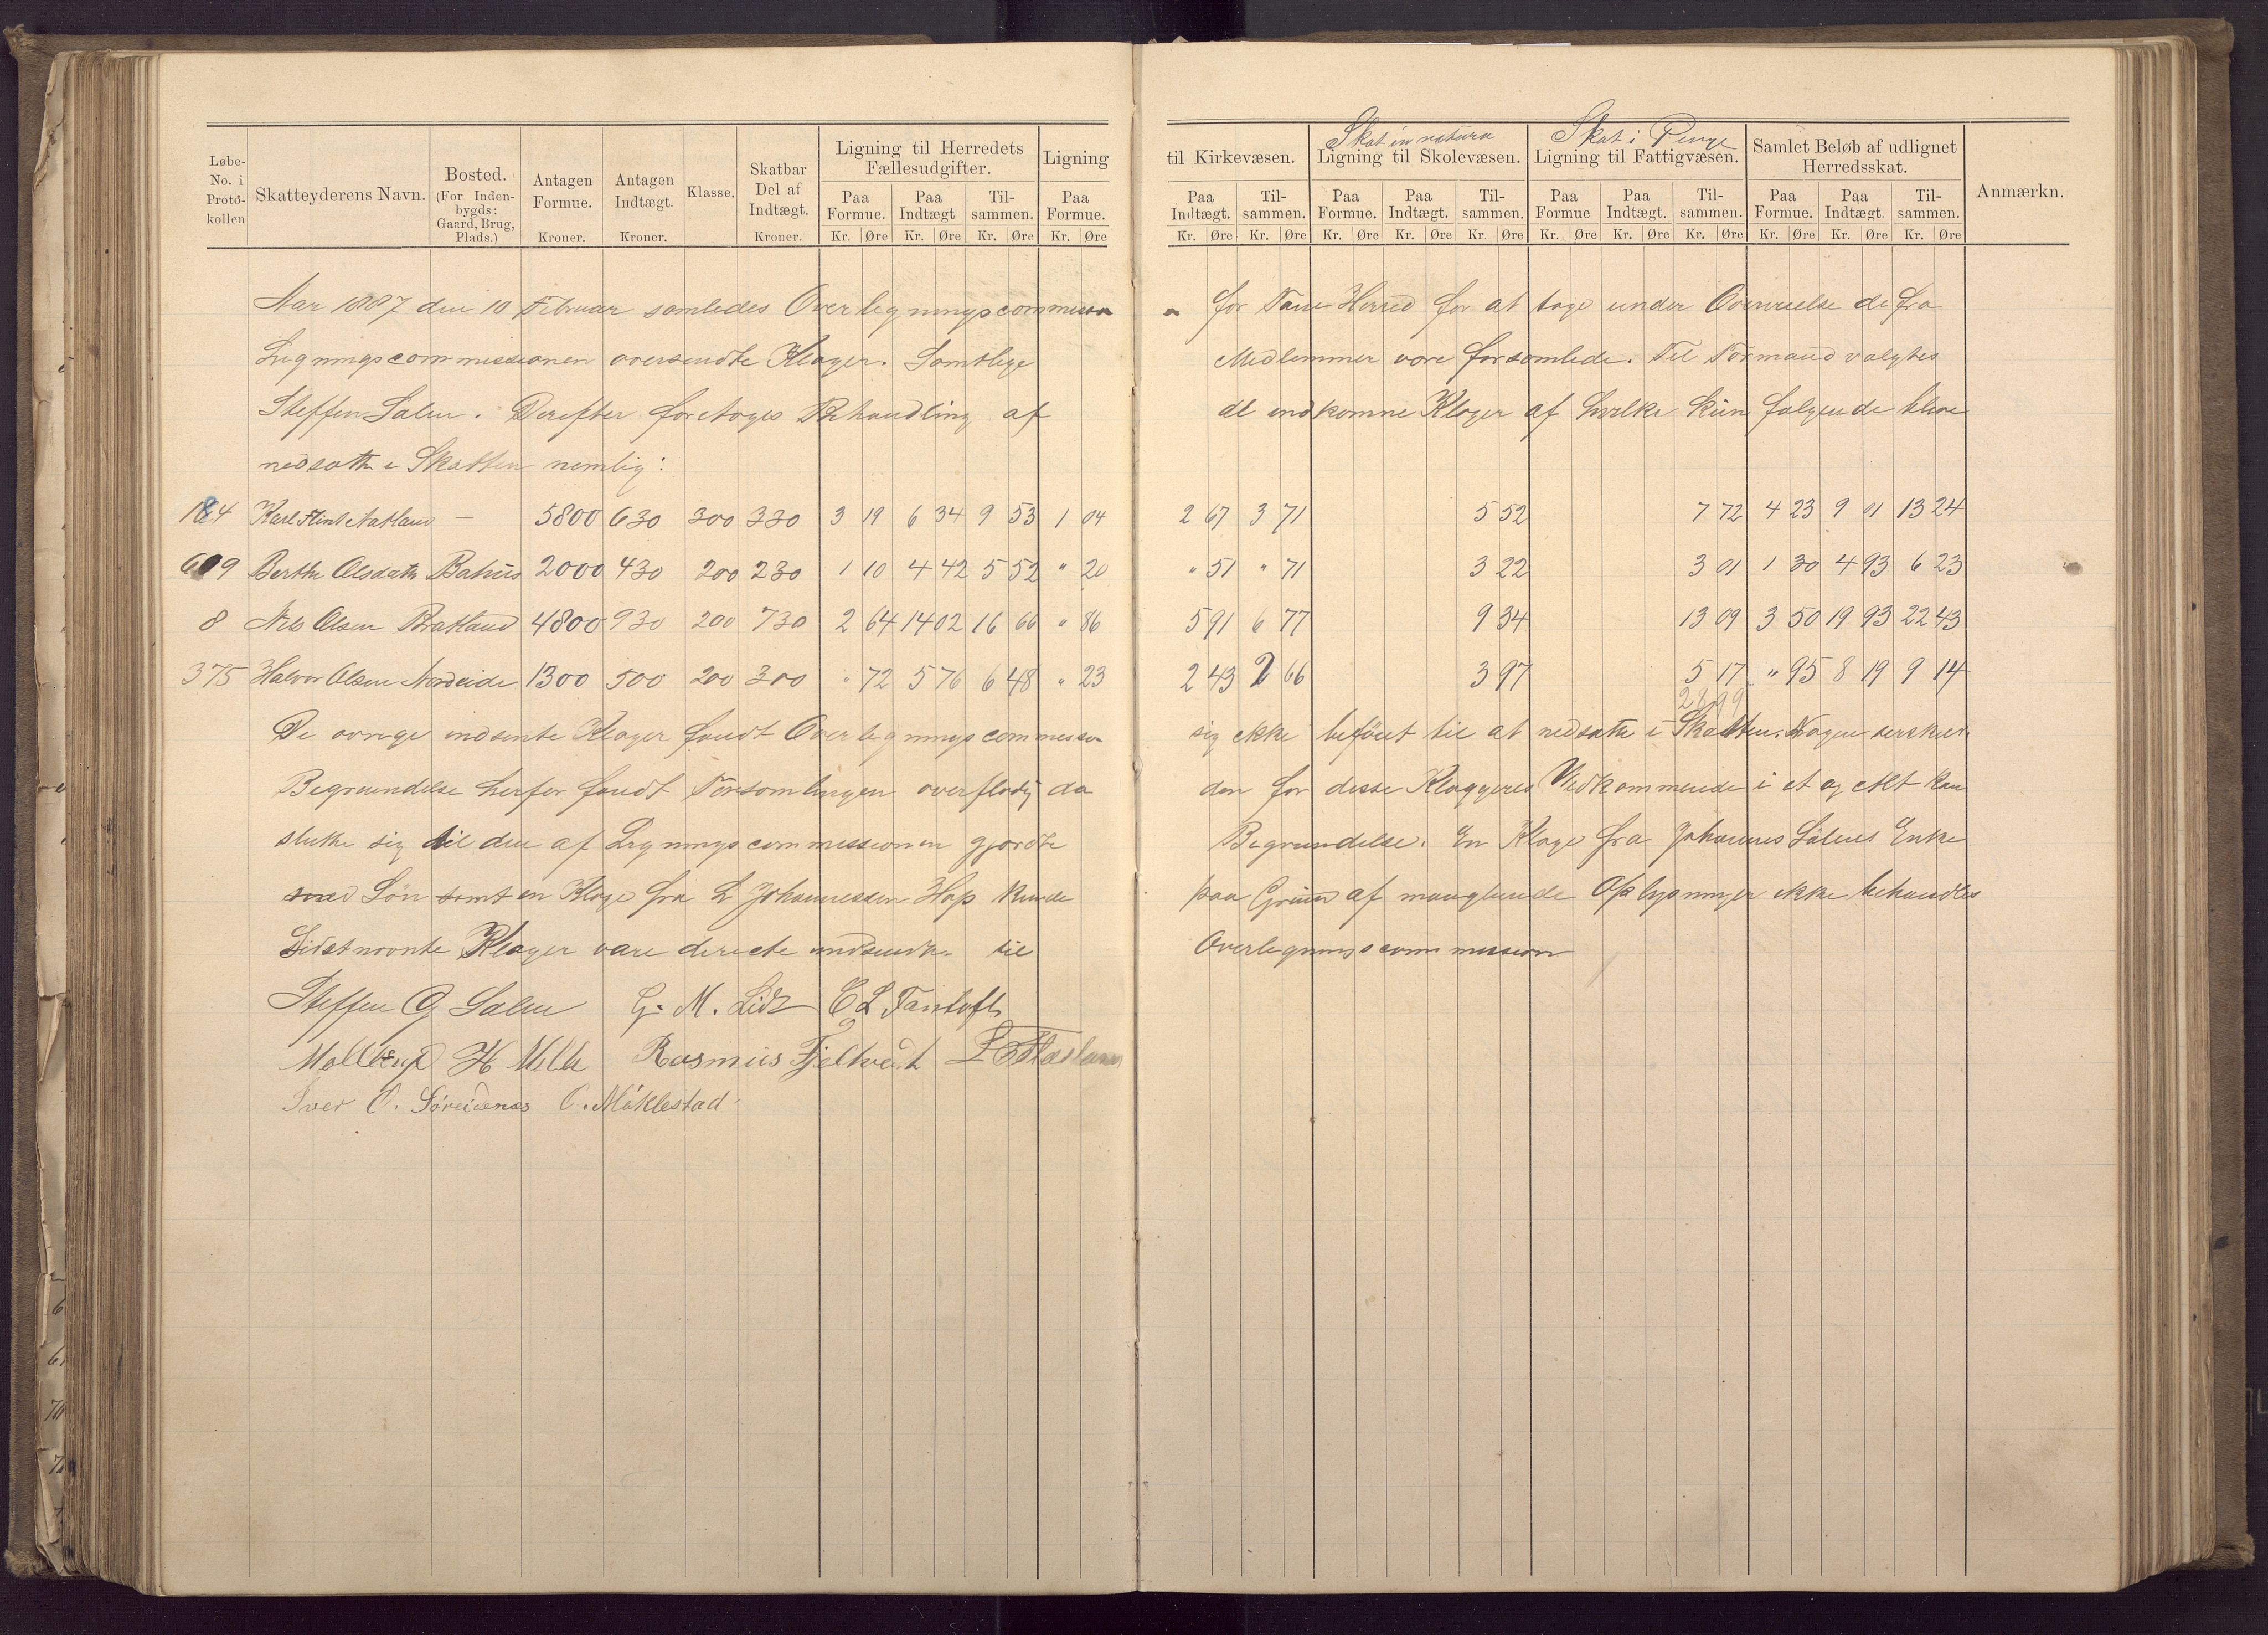 Skat in natura Skat i Penge
Løbe-No. i Proto-kollen Skatteyderens Navn. Bosted. (For Inden-bygds: Gaard, Brug, Plads.) Antagen Formue. Kroner. Antagen Indtægt. Kroner. Klasse. Skatbar Del af Indtægt. Kroner. Ligning til Herredets Fællesudgifter. Ligning til Kirkevæsen. Ligning til Skolevæsen. Ligning til Fattigvæsen. Samlet Beløb af udlignet Herredsskat. Anmærkn.
Paa Formue. Paa Indtægt Til-sammen. Paa Formue. Paa Indtægt. Til-sammen. Paa Formue. Paa Indtægt. Til-sammen. Paa Formue Paa Indtægt. Til-sammen. Paa Formue. Paa Indtægt. Til-sammen.
Kr. Øre Kr. Øre Kr. Øre Kr. Øre Kr. Øre Kr. Øre Kr. Øre Kr. Øre Kr. Øre Kr. Øre Kr. Øre Kr. Øre Kr. Øre Kr. Øre Kr. Øre
Aar 1887 den 10 Februar samledes Overlegningscommission for Fane Herred for at tage under Overveielse de fra
Ligningscommissionen oversendte Klager. Samtlige Medlemmer vare forsamlede. Til Formand valgtes
Steffen Salen. Derefter foretoges Behandling af de indkomne Klager af hvilke kun følgende bleve
nedsatte i Skatten nemlig:
184 Karl Flint Natland — 5800 630 300 330 3 19 6 34 9 53 1 04 2 67 3 71 5 52 7 72 4 23 9 01 13 24
609 Berthe Olsdatr Bahus 2000 430 200 230 1 10 4 42 5 52 " 20 " 51 " 71 3 22 3 01 1 30 4 93 6 23
8 Nils Olsen Bratland 4800 930 200 730 2 64 14 02 16 66 " 86 5 91 6 77 9 34 13 09 3 50 19 93 22 43
375 Halvor Olsen Nordeide 1300 500 200 300 " 72 5 76 6 48 " 23 2 43 2 66 3 97 5 17 " 95 8 19 9 14
2899
De øvrige indsente Klager fandt Overlegningscommission sig ikke beføiet til at nedsatte i Skatten. Nogen serskit
Begrundelse herfor fandt Forsamlingen overflødig da den for disse Klageres Vedkommende i et og Alt kan
slutte sig til den af Ligningscommissionen gjordte Begrundelse. En Klage fra Johannes Sälens Enke
med Søn samt en Klage fra L Johannessen Hop kunde paa Grund af manglende Oplysninger ikke behandles
Sidstnevnte Klager vare directe indsendte til Overlegningscommission
Steffen O Salen G. M. Lidt C L Fantoft
Mollerup H Milde Rasmus Fjeltvedt
Iver O. Søreidenæs O. Møklestad